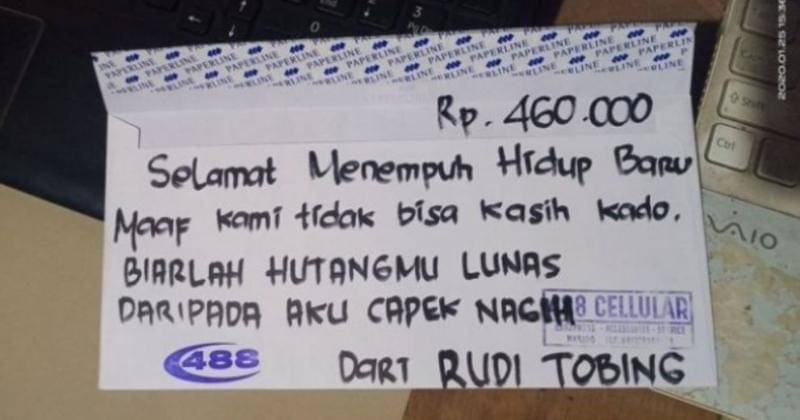 PAPERLINE PAPERLINE PAPERLINE PAPERLINE PAPERLINE PAPERLINE
Rp. 460.000
Selamat Menempuh Hidup Baru
Maaf kami tidak bisa kasih kado.
BIARLAH HUTANGMU LUNAS
DARIPADA AKU CAPEK NAGIH
8 CELLULAR
488
Dari RUDI TOBING
Shift
Ctrl
VAIO